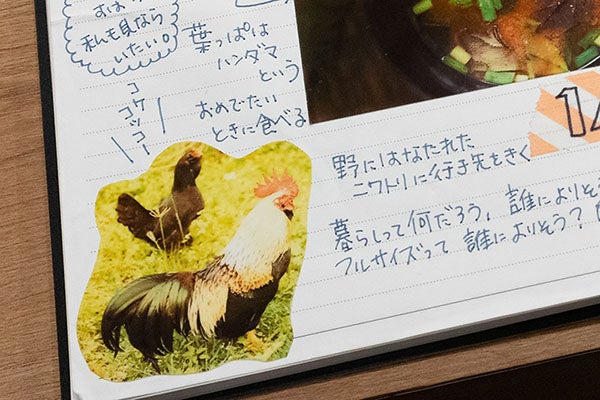 私も見なら
いたい。
葉っぱは
ハンダマ
という
おめでたい
ときに食べる
コケッコー
12
野にはなたれた
ニワトリに行き先をきく
暮らしって何だろう、誰によりそ
フルサイズって誰によりそう?